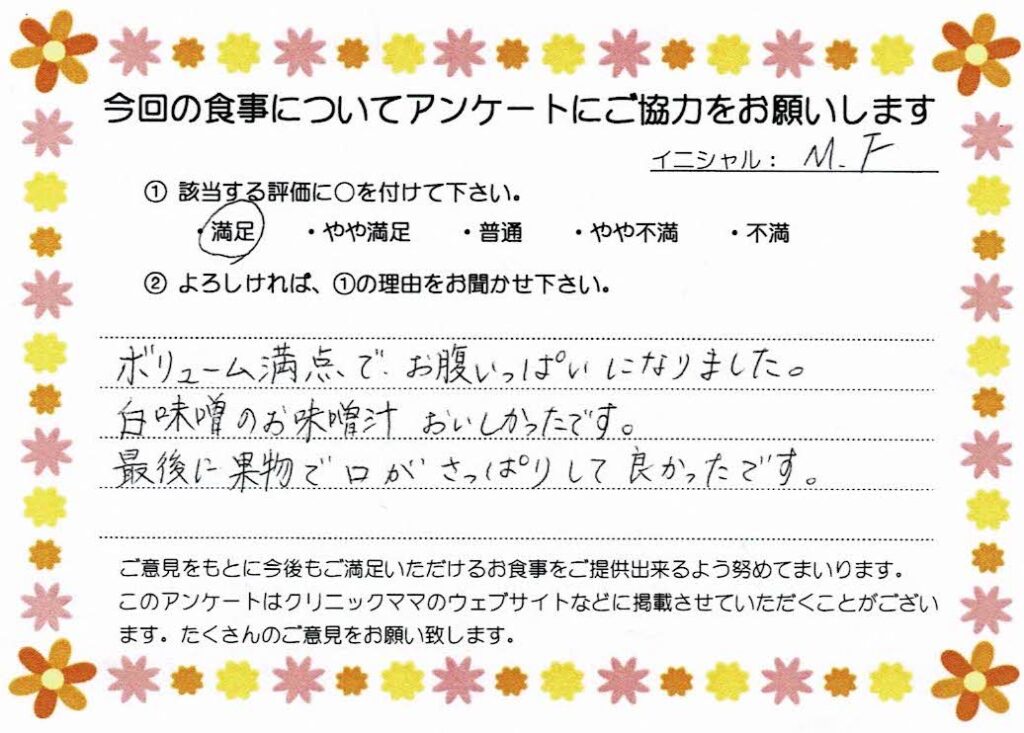 今回の食事についてアンケートにご協力をお願いします
イニシャル： M.F
① 該当する評価に○を付けて下さい。
・満足 ・やや満足 ・普通 ・やや不満 ・不満
② よろしければ、①の理由をお聞かせ下さい。
ボリューム満点で、お腹いっぱいになりました。
白味噌のお味噌汁 おいしかったです。
最後に果物で口がさっぱりして良かったです。
ご意見をもとに今後もご満足いただけるお食事をご提供出来るよう努めてまいります。
このアンケートはクリニックママのウェブサイトなどに掲載させていただくことがござい
ます。たくさんのご意見をお願い致します。